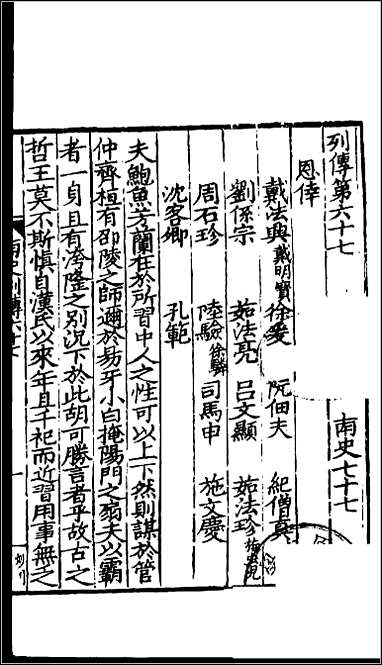 列傳第六十七　南史七十七
恩倖
戴法興戴明寶　徐爰　阮佃夫　紀僧真
劉係宗　茹法亮　呂文顯　茹法珍梅蟲兒
周石珍　陸驗徐驎　司馬申　施文慶
沈客卿　孔範
夫鮑魚芳蘭在於所習中人之性可以上下然則謀於管
仲齊桓有邵陵之師邇於易牙小白掩陽門之扇夫以霸
者一身且有洿隆之別況下於此胡可勝言者乎故古之
哲王莫不斯慎自漢氏以來年且千祀而近習用事無之
南史列傳六十七　一